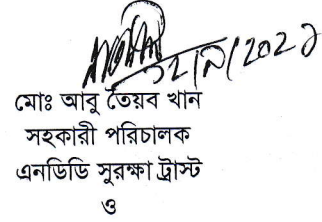 মোঃ আবু তৈয়ব খান
সহকারী পরিচালক
এনডিডি সুরক্ষা ট্রাস্ট
ও